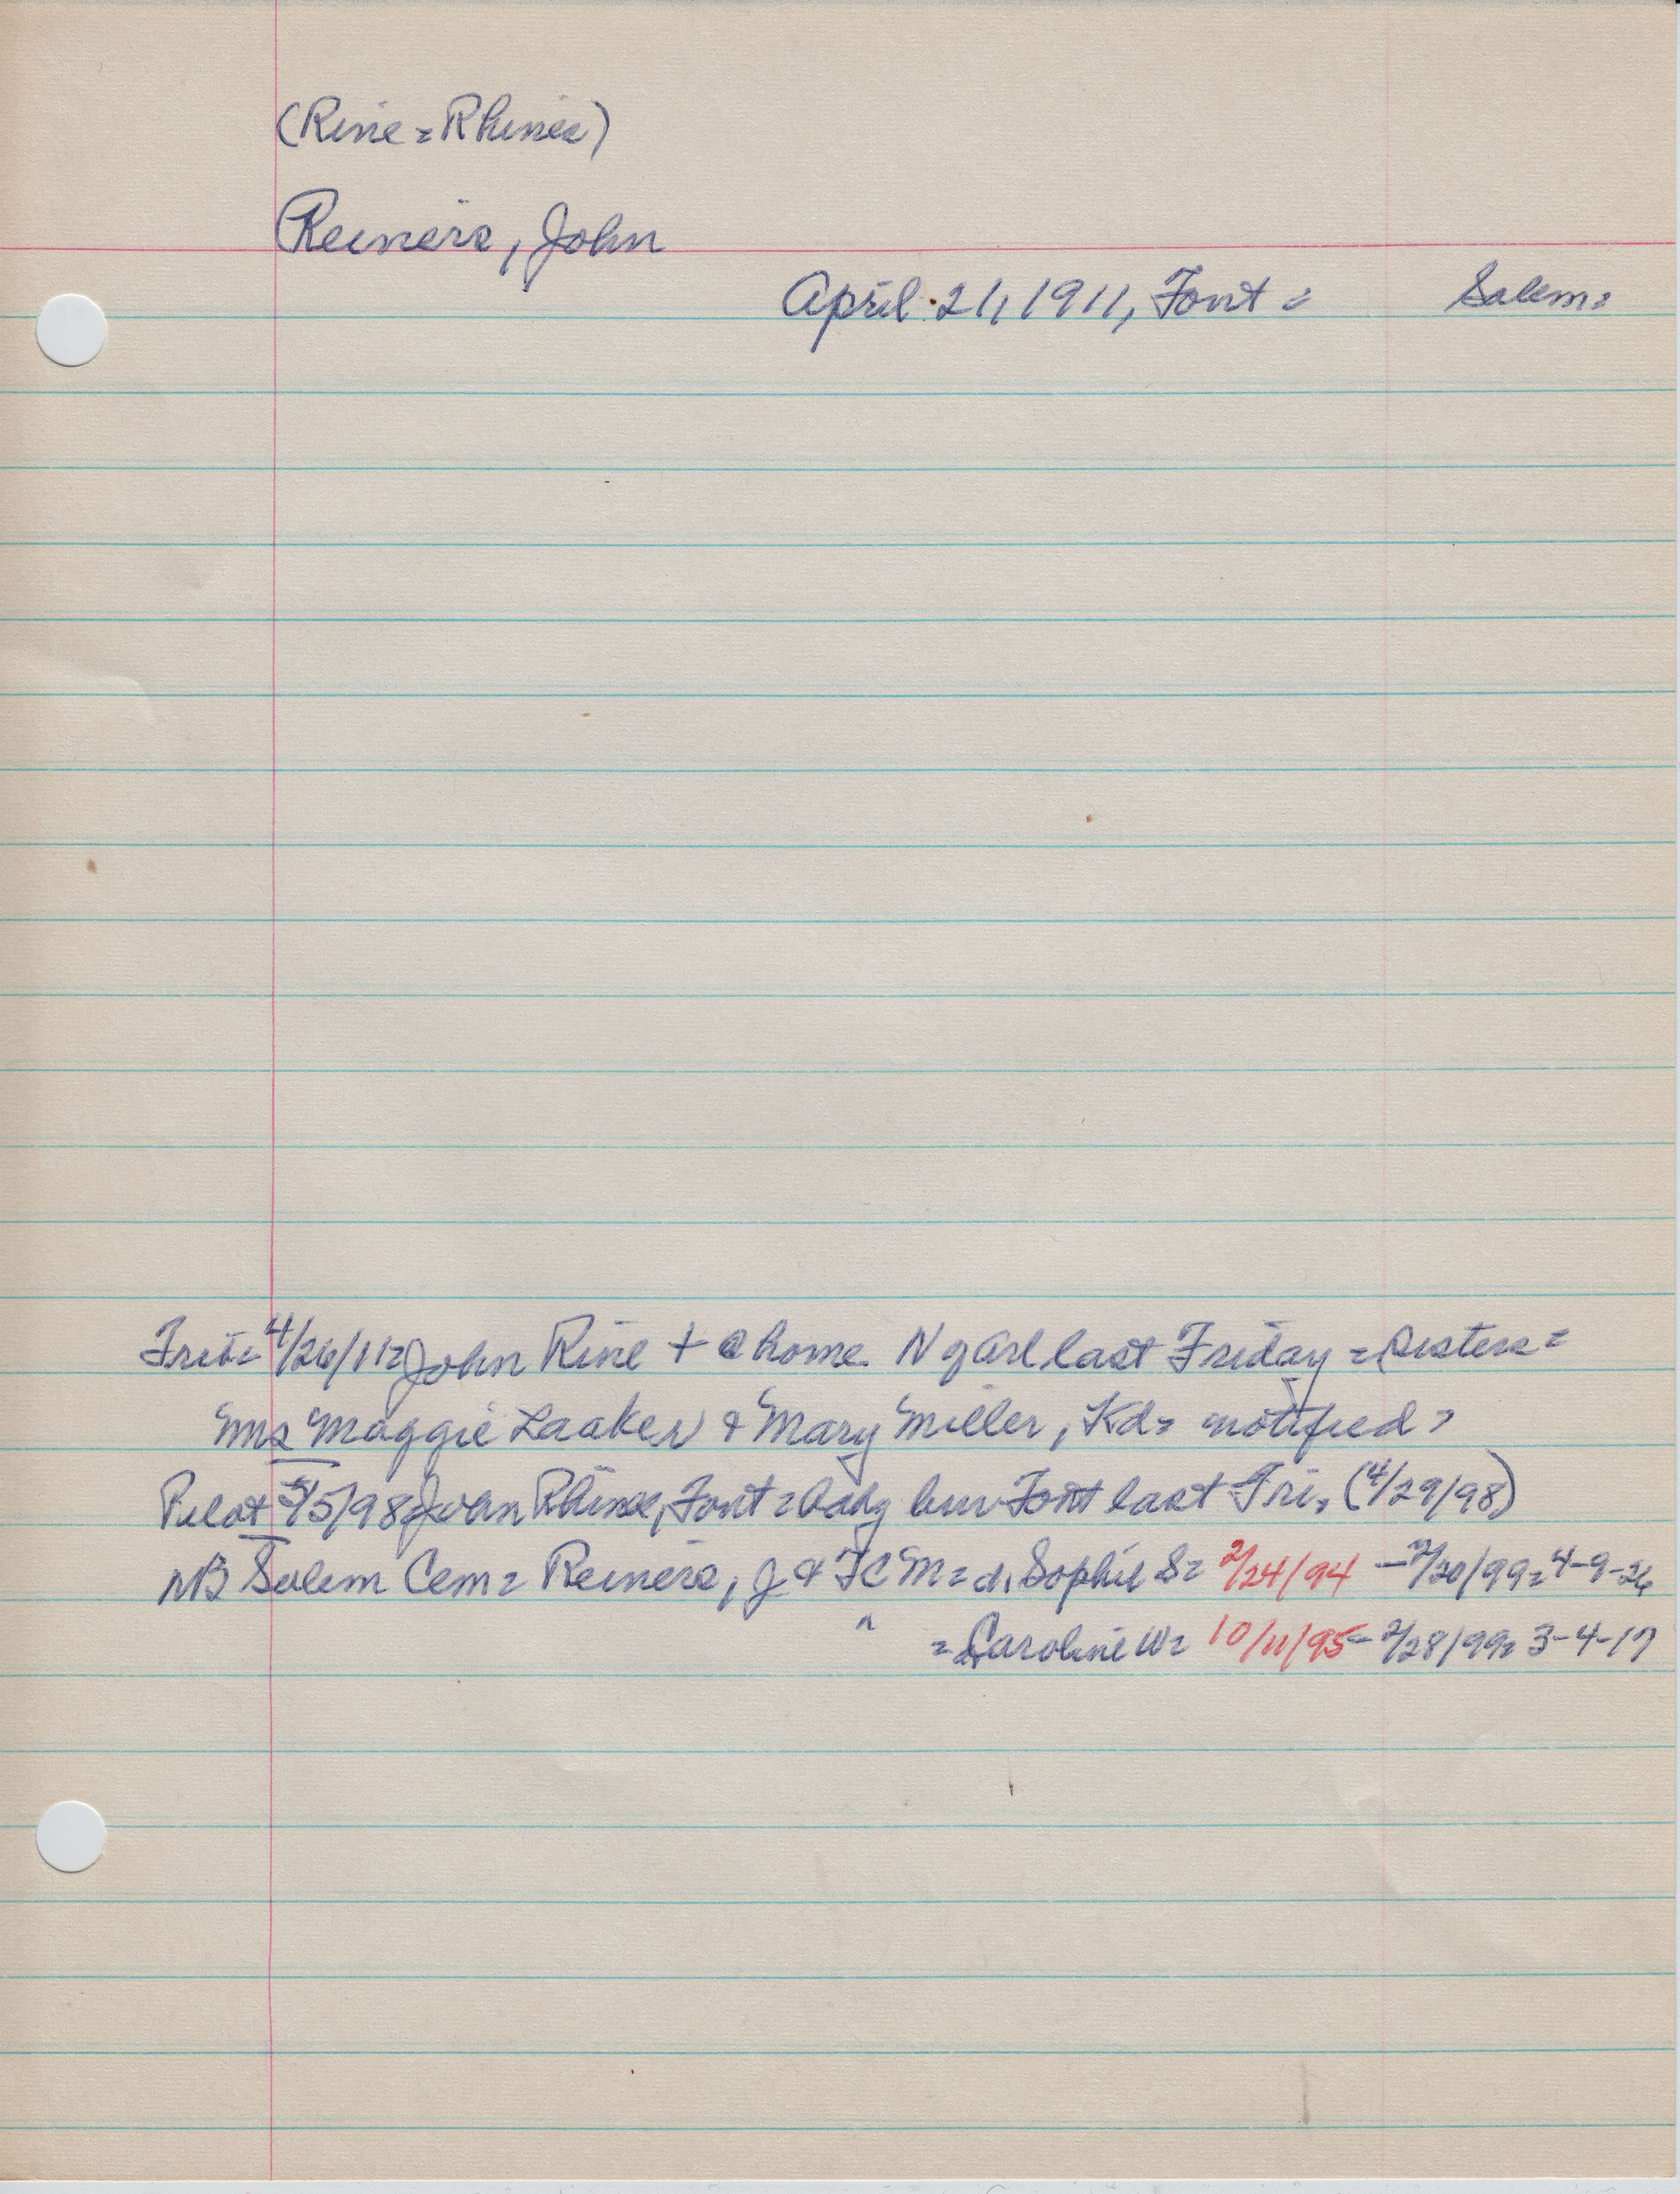 (Rine = Rhines)
Reiners, John
April 21, 1911, Font = Salem =
Trib = 4/26/11 = John Rine + @ home N of Arl last Friday = sisters =
Mrs Maggie Laaker & Mary Miller, Kd = notified =
Pilot 5/5/98 John Rhines, Font = baby bur Font last Fri. (4/29/98)
NB Salem Cem = Reiners, J & F C M = d. Sophie S = 2/24/94 - 2/20/99 = 4-9-26
" = Caroline W = 10/11/95 - 2/28/99 = 3-4-17